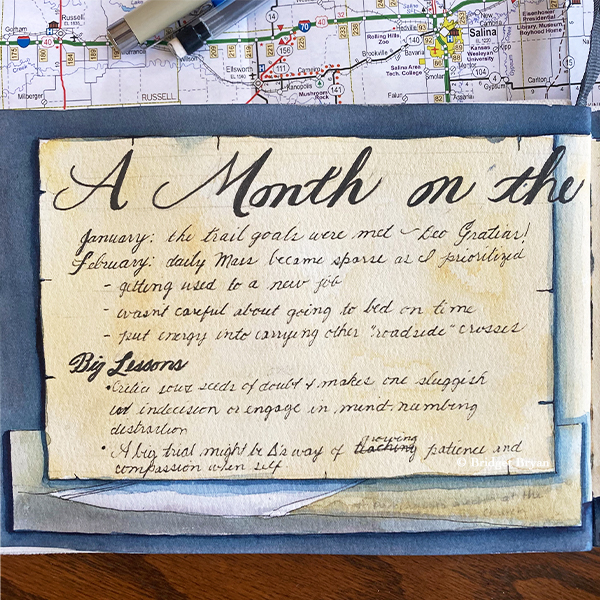 Russell
Gorham
Milberger
RUSSELL
Ellsworth
Kanopolis
Mushroom
Rock
Carneiro
Rolling Hills
Zoo
Brookville
Bavaria
Salina Area
Tech. College
Falun
Salina
Kansas
Wesleyan
University
Smolan
Assaria
Gypsum
Carlton
Eisenhower
Presidential
Library, Museum
Boyhood Home
New
Cambria
Solomon
70
40
156
111
141
140
104
4
15
A Month on the
January: the trail goals were met - Deo Gratias!
February: daily Mass became sparse as I prioritized
- getting used to a new job
- wasn't careful about going to bed on time
- put energy into carrying other "roadside" crosses
Big Lessons
• sows seeds of doubt & makes one sluggish
indecision or engage in mind-numbing
distraction
• A big trial might be way of growing patience and
compassion when self
© Bridget Bryan